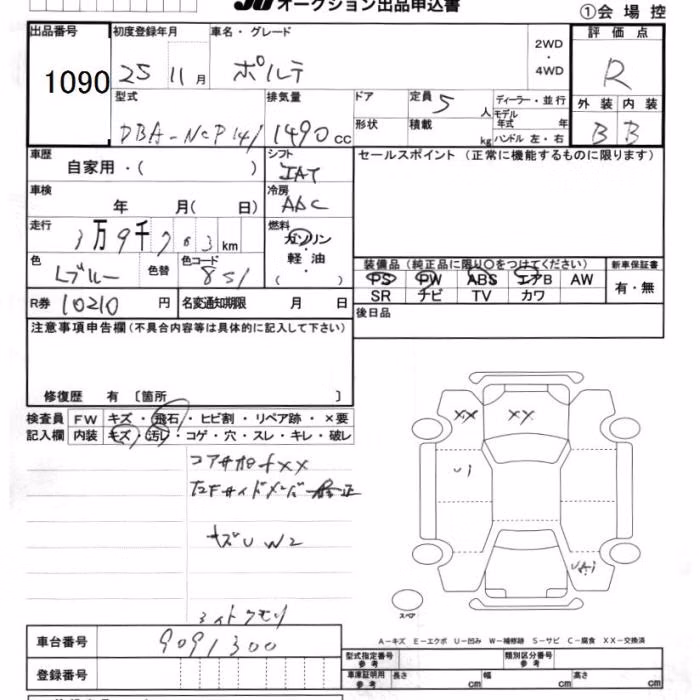 JU オークション出品申込書
①会場控
出品番号 1090
初度登録年月 25 11月
車名・グレード ポルテ
2WD・4WD
評価点 R
型式 DBA-NCP141
排気量 1490cc
ドア
定員 5人
ディーラー・並行
モデル年式 年
形状
積載 kg
ハンドル 左・右
外装 B
内装 B
車歴 自家用・( )
シフト IAT
セールスポイント (正常に機能するものに限ります)
車検 年 月( 日)
冷房 AAC
走行 3万9千763km
燃料 ガソリン 軽油 ( )
色 Lブルー 色替
色コード 8S1
装備品(純正品に限り○をつけてください)
新車保証書 有・無
PS PW ABS エアB AW
SR ナビ TV カワ
R券 10210円
名変通知期限 月 日
後日品
注意事項申告欄(不具合内容等は具体的に記入して下さい)
修復歴 有 〔箇所 〕
検査員記入欄
FW キズ・飛石・ヒビ割・リペア跡・×要
内装 キズ・汚レ・コゲ・穴・スレ・キレ・破レ
コアサポートXX
修正
キズU W2
XX XX
U1
スペア
車台番号 9091300
A-キズ E-エクボ U-凹み W-補修跡 S-サビ C-腐食 XX-交換済
登録番号
型式指定番号 参考
類別区分番号 参考
車庫証明用 参考
長さ cm
幅 cm
高さ cm